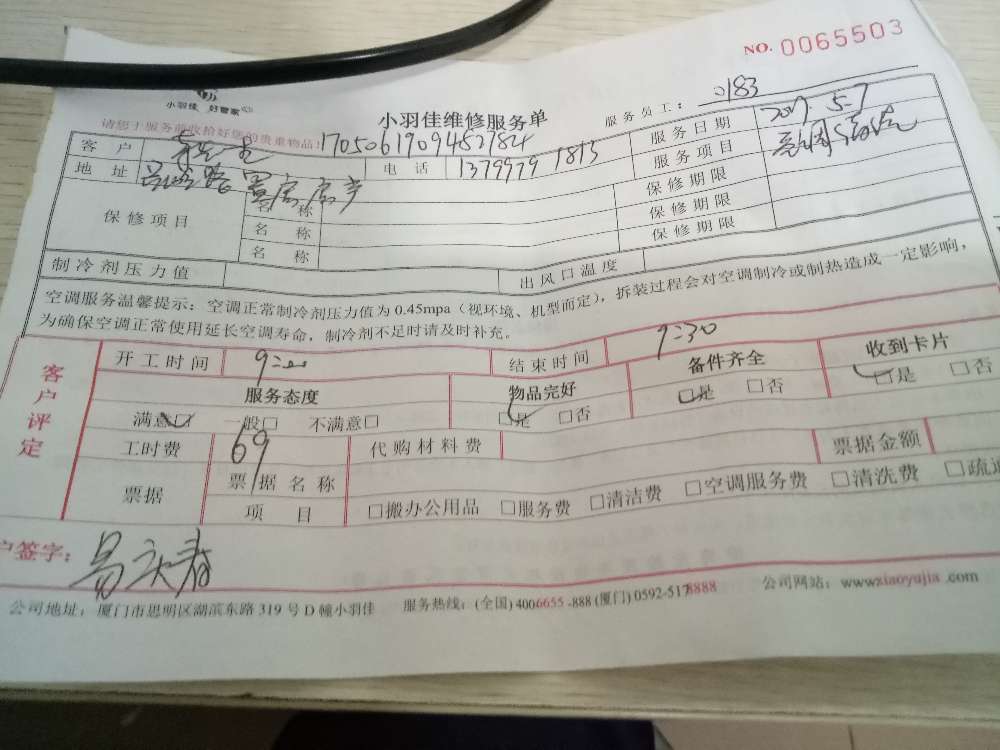 NO. 0065503
小羽佳 好管家
小羽佳维修服务单
服务员工： 0183
请您于服务前收拾好您的贵重物品！ 1705061909482784
服务日期 2017.5.7
客 户
电 话 13799791813
服务项目 空调清洗
地 址
保修期限
保修项目
名 称
保修期限
名 称
保修期限
名 称
制冷剂压力值 出风口温度
空调服务温馨提示：空调正常制冷剂压力值为 0.45mpa（视环境、机型而定），拆装过程会对空调制冷或制热造成一定影响，
为确保空调正常使用延长空调寿命，制冷剂不足时请及时补充。
客户评定
开工时间 9:00 结束时间 9:30
服务态度 物品完好 备件齐全 收到卡片
满意☑ 一般□ 不满意□ ☑是 □否 ☑是 □否 ☑是 □否
工时费 69 代购材料费 票据金额
票据 票据名称
项 目 □搬办公用品 □服务费 □清洁费 □空调服务费 □清洗费 □疏通
户签字： 易庆春
公司地址：厦门市思明区湖滨东路 319 号 D 幢小羽佳 服务热线：(全国) 4006655-888 (厦门) 0592-5178888 公司网站：www.xiaoyujia.com